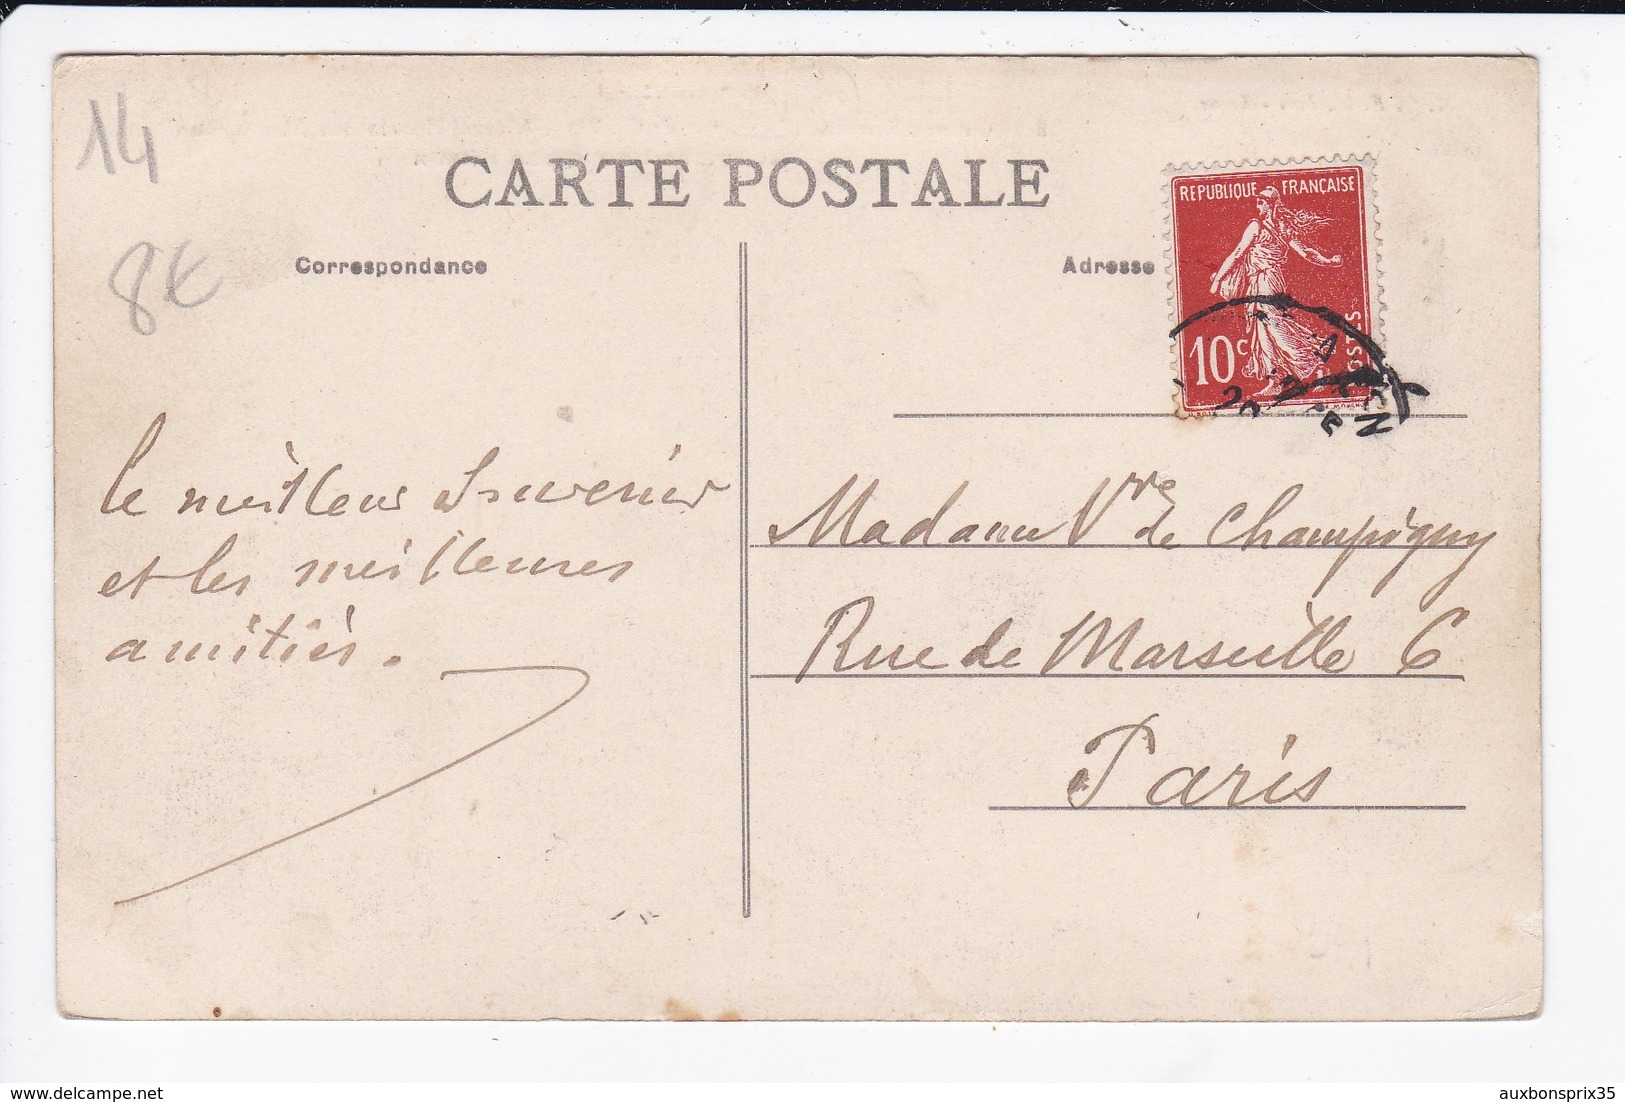 14
8€
CARTE POSTALE
Correspondance
Adresse
REPUBLIQUE FRANÇAISE
10c
POSTES
le meilleur Souvenir
et les meilleures
amitiés.
Madame Vve de Champigny
Rue de Marseille 6
Paris
https://www.delcampe.net
auxbonsprix35